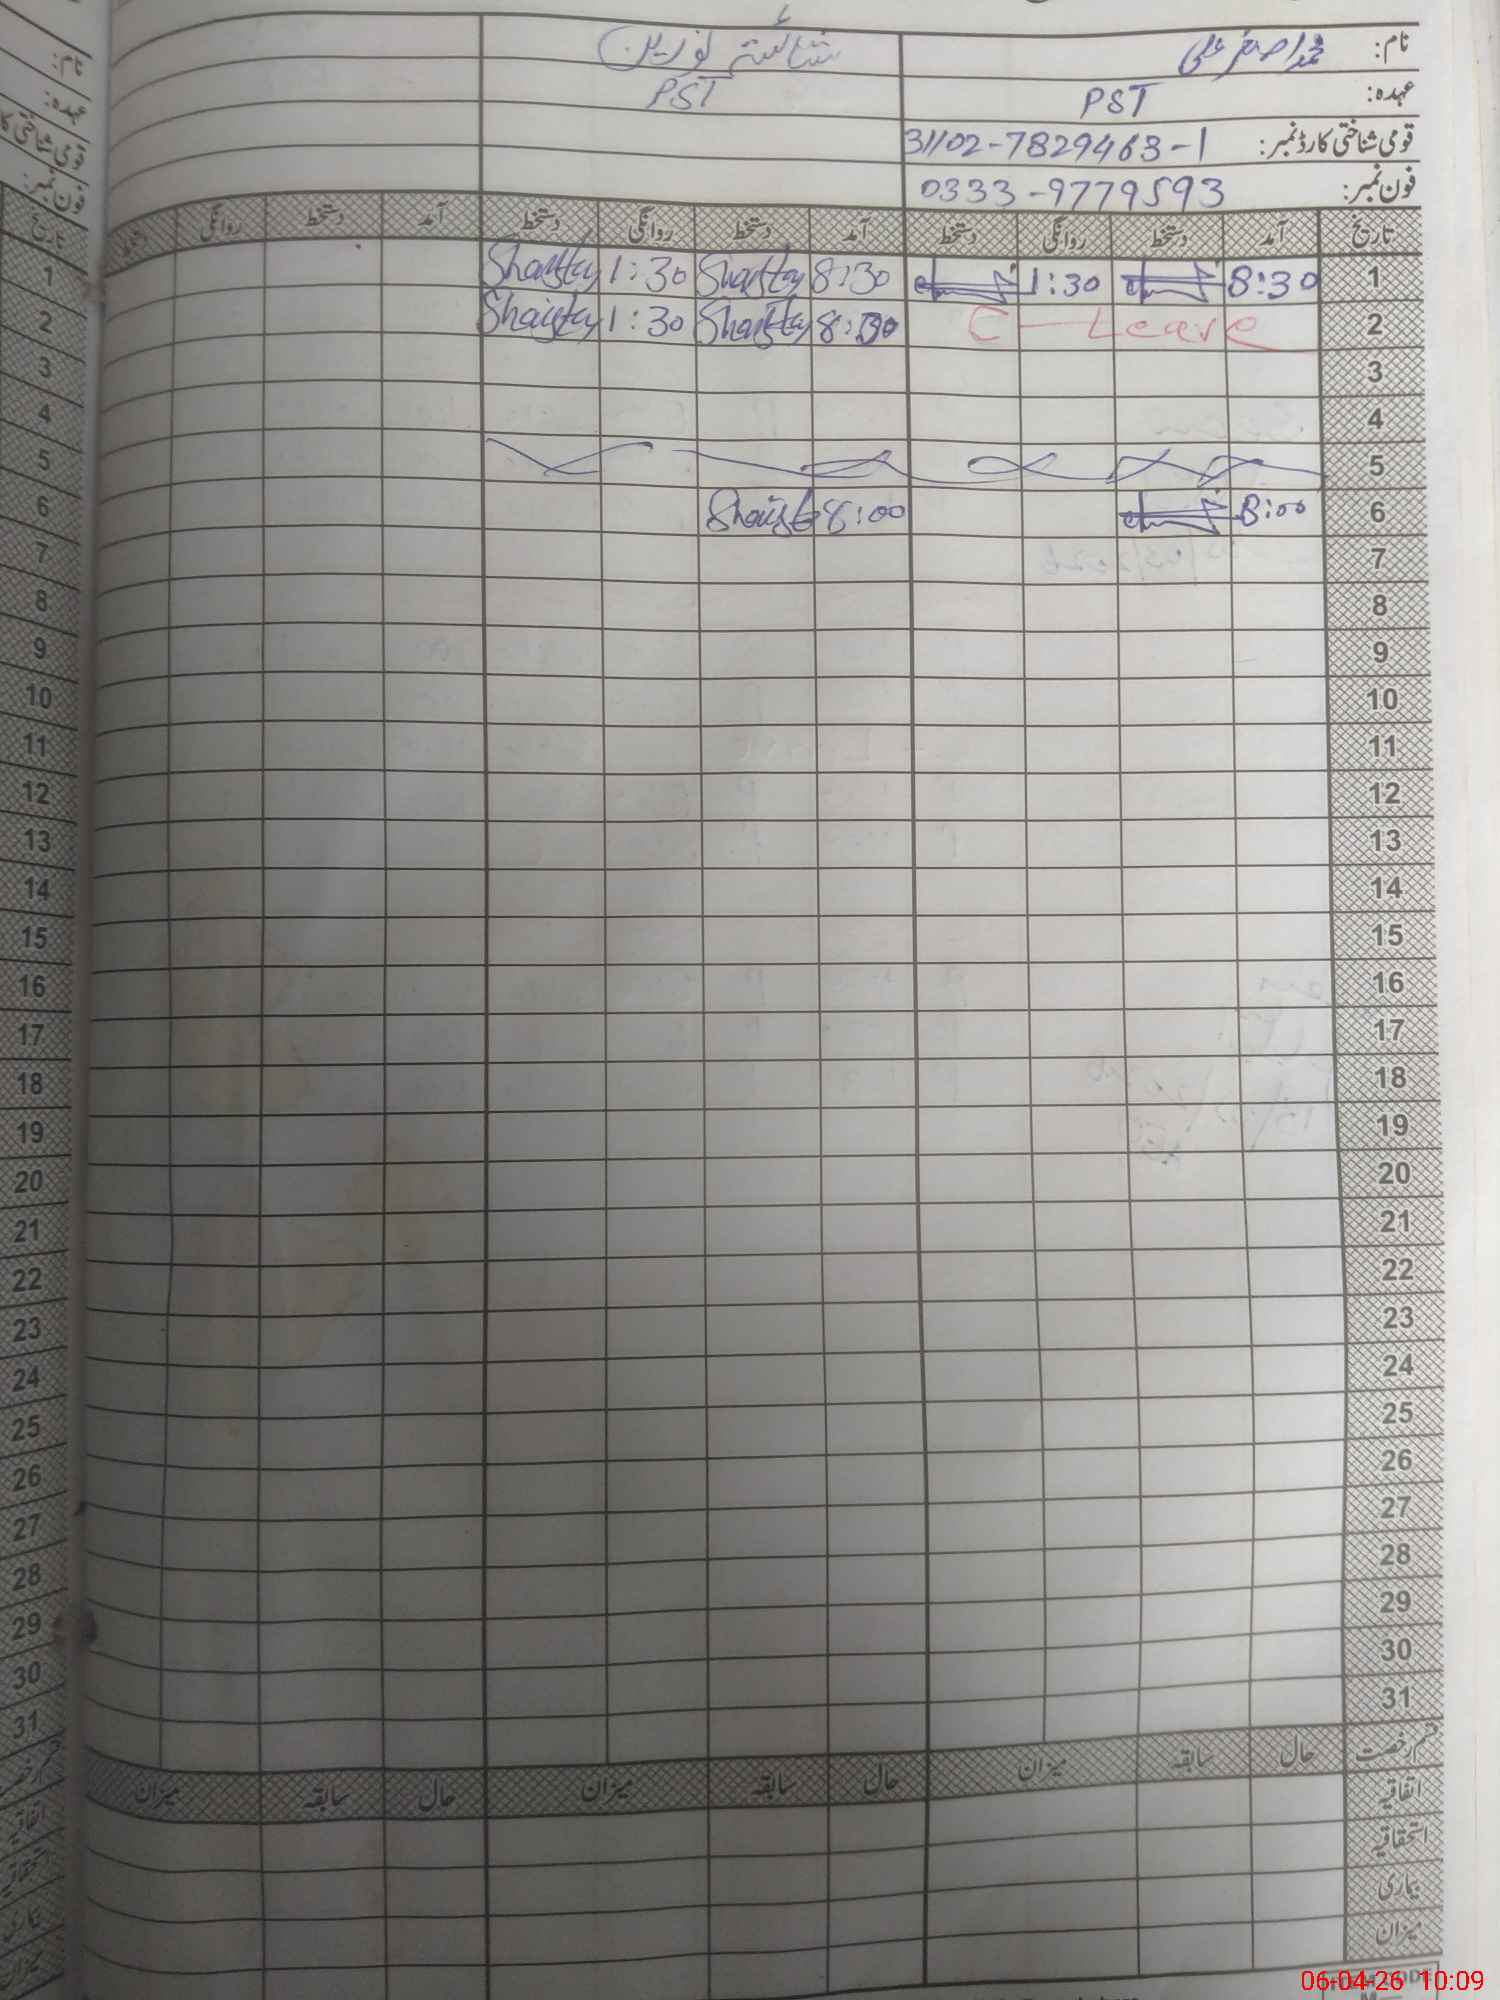 نام: محمد اصغر علی شائستہ نورین
عہدہ: PST PST
قومی شناختی کارڈ نمبر: 31102-7829463-1
فون نمبر: 0333-9779593
تاریخ آمد دستخط روانگی دستخط آمد دستخط روانگی دستخط آمد دستخط روانگی دستخط
1 8:30 1:30 8:30 Shaista 1:30 Shaista
2 C-Leave 8:30 Shaista 1:30 Shaista
3
4
5
6 8:00 8:00 Shaista
7
8
9
10
11
12
13
14
15
16
17
18
19
20
21
22
23
24
25
26
27
28
29
30
31
قسم رخصت حال سابقہ میزان حال سابقہ میزان حال سابقہ میزان
اتفاقیہ
استحقاقیہ
بیماری
میزان
06-04-26 10:09